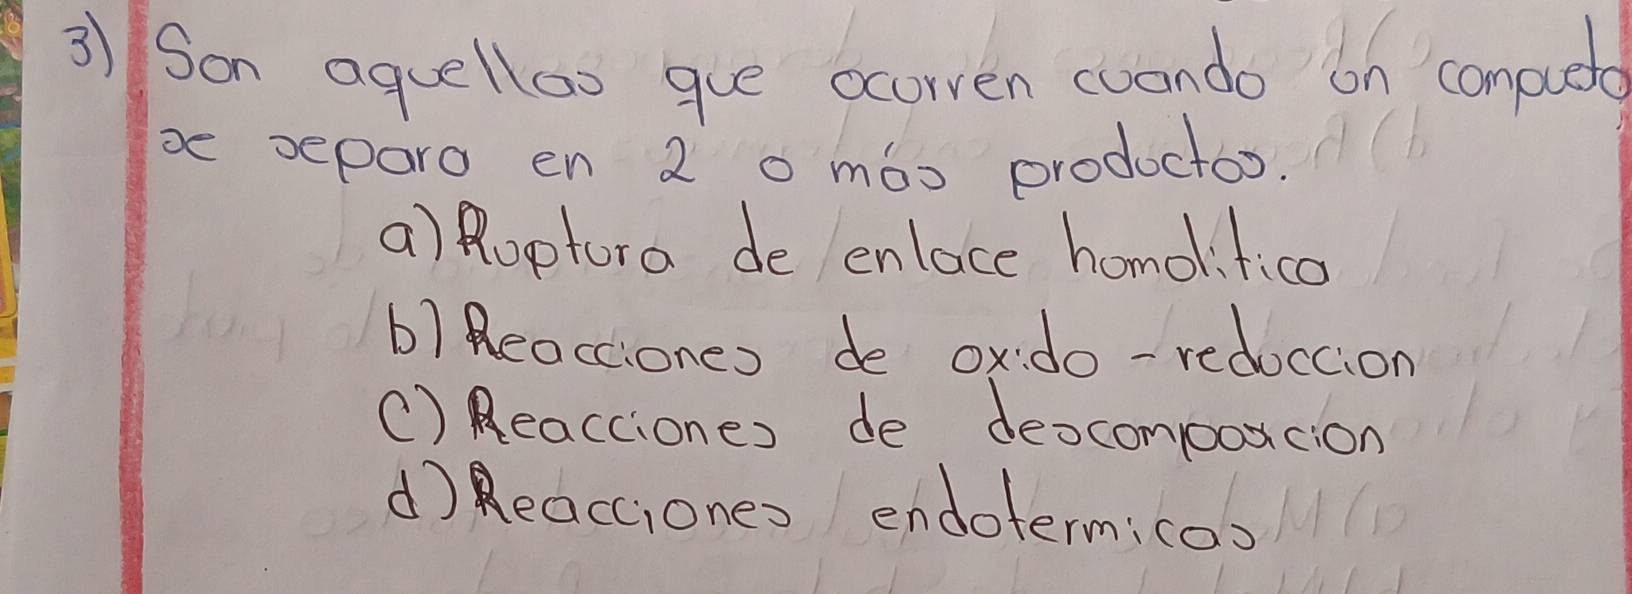 3) Son aquellas que ocurren cuando un compueto
se separa en 2 o más productos.
a) Ruptura de enlace homolitica
b) Reacciones de oxido-reduccion
c) Reacciones de descomposicion
d) Reacciones endotermicas